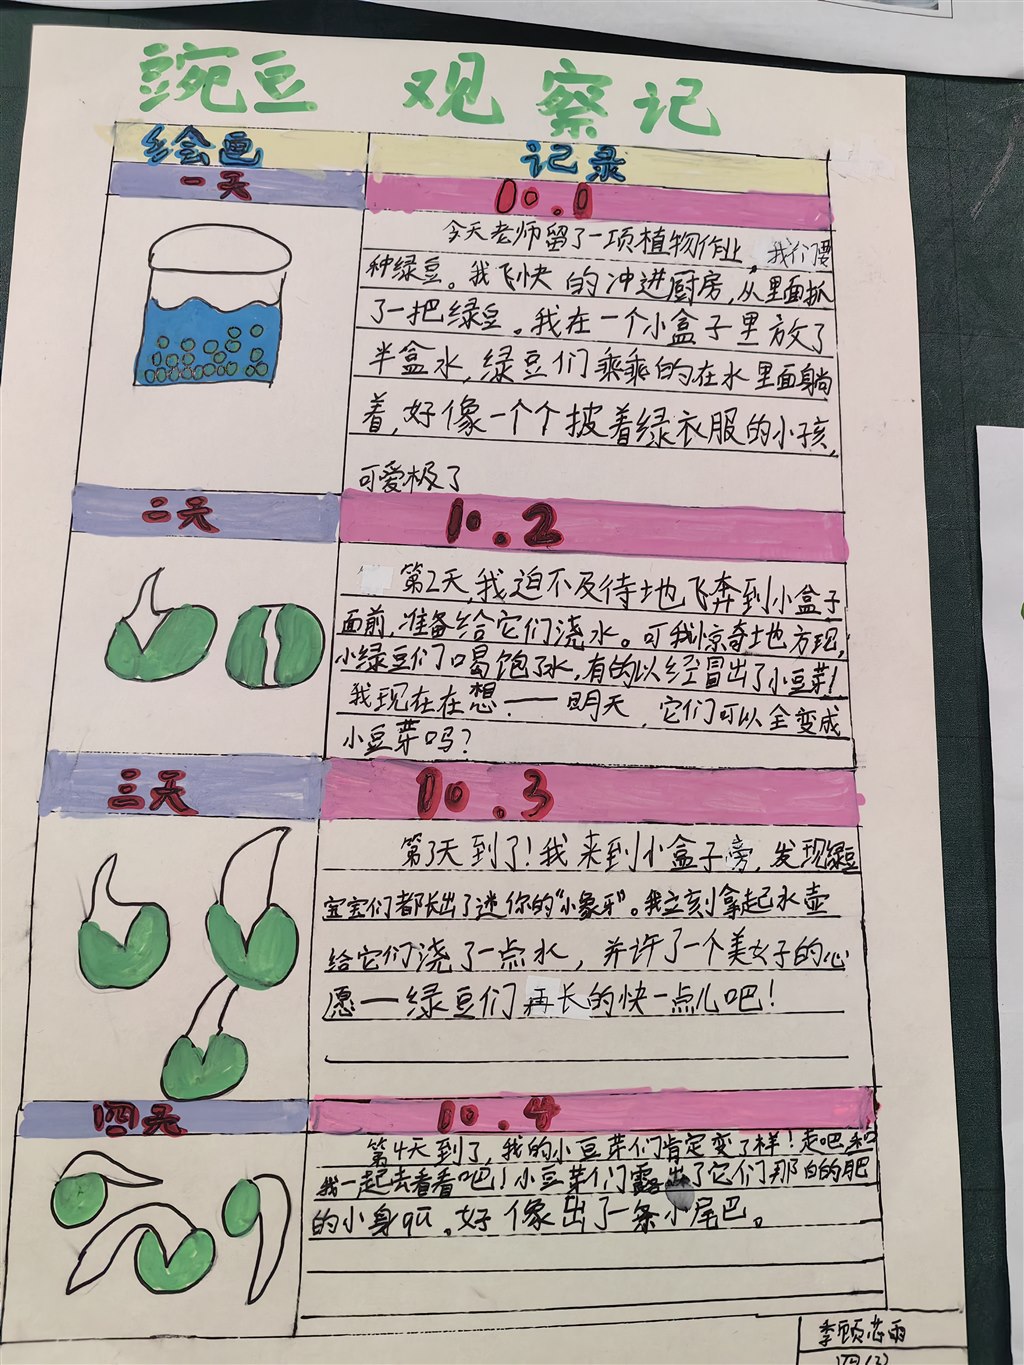 豌豆 观察记
绘画
记录
一天
10.1
今天老师留了一项植物作业，我们要
种绿豆。我飞快的冲进厨房，从里面抓
了一把绿豆。我在一个小盒子里放了
半盒水，绿豆们乘乘的在水里面躺
着，好像一个个披着绿衣服的小孩，
可爱极了
二天
10.2
第2天，我迫不及待地飞奔到小盒子
面前，准备给它们浇水。可我惊奇地方现，
小绿豆们喝饱了水，有的以经冒出了小豆芽！
我现在在想——明天，它们可以全变成
小豆芽吗？
三天
10.3
第3天到了！我来到小盒子旁，发现绿豆
宝宝们都长出了迷你的“小象牙”。我立刻拿起水壶
给它们浇了一点水，并许了一个美好的心
愿——绿豆们再长的快一点儿吧！
四天
10.4
第4天到了，我的小豆芽们肯定变了样！走吧和
我一起去看看吧！小豆芽们露出了它们那白的肥
的小身qū。好像出了一条小尾巴。
李顾芯雨
四(2)